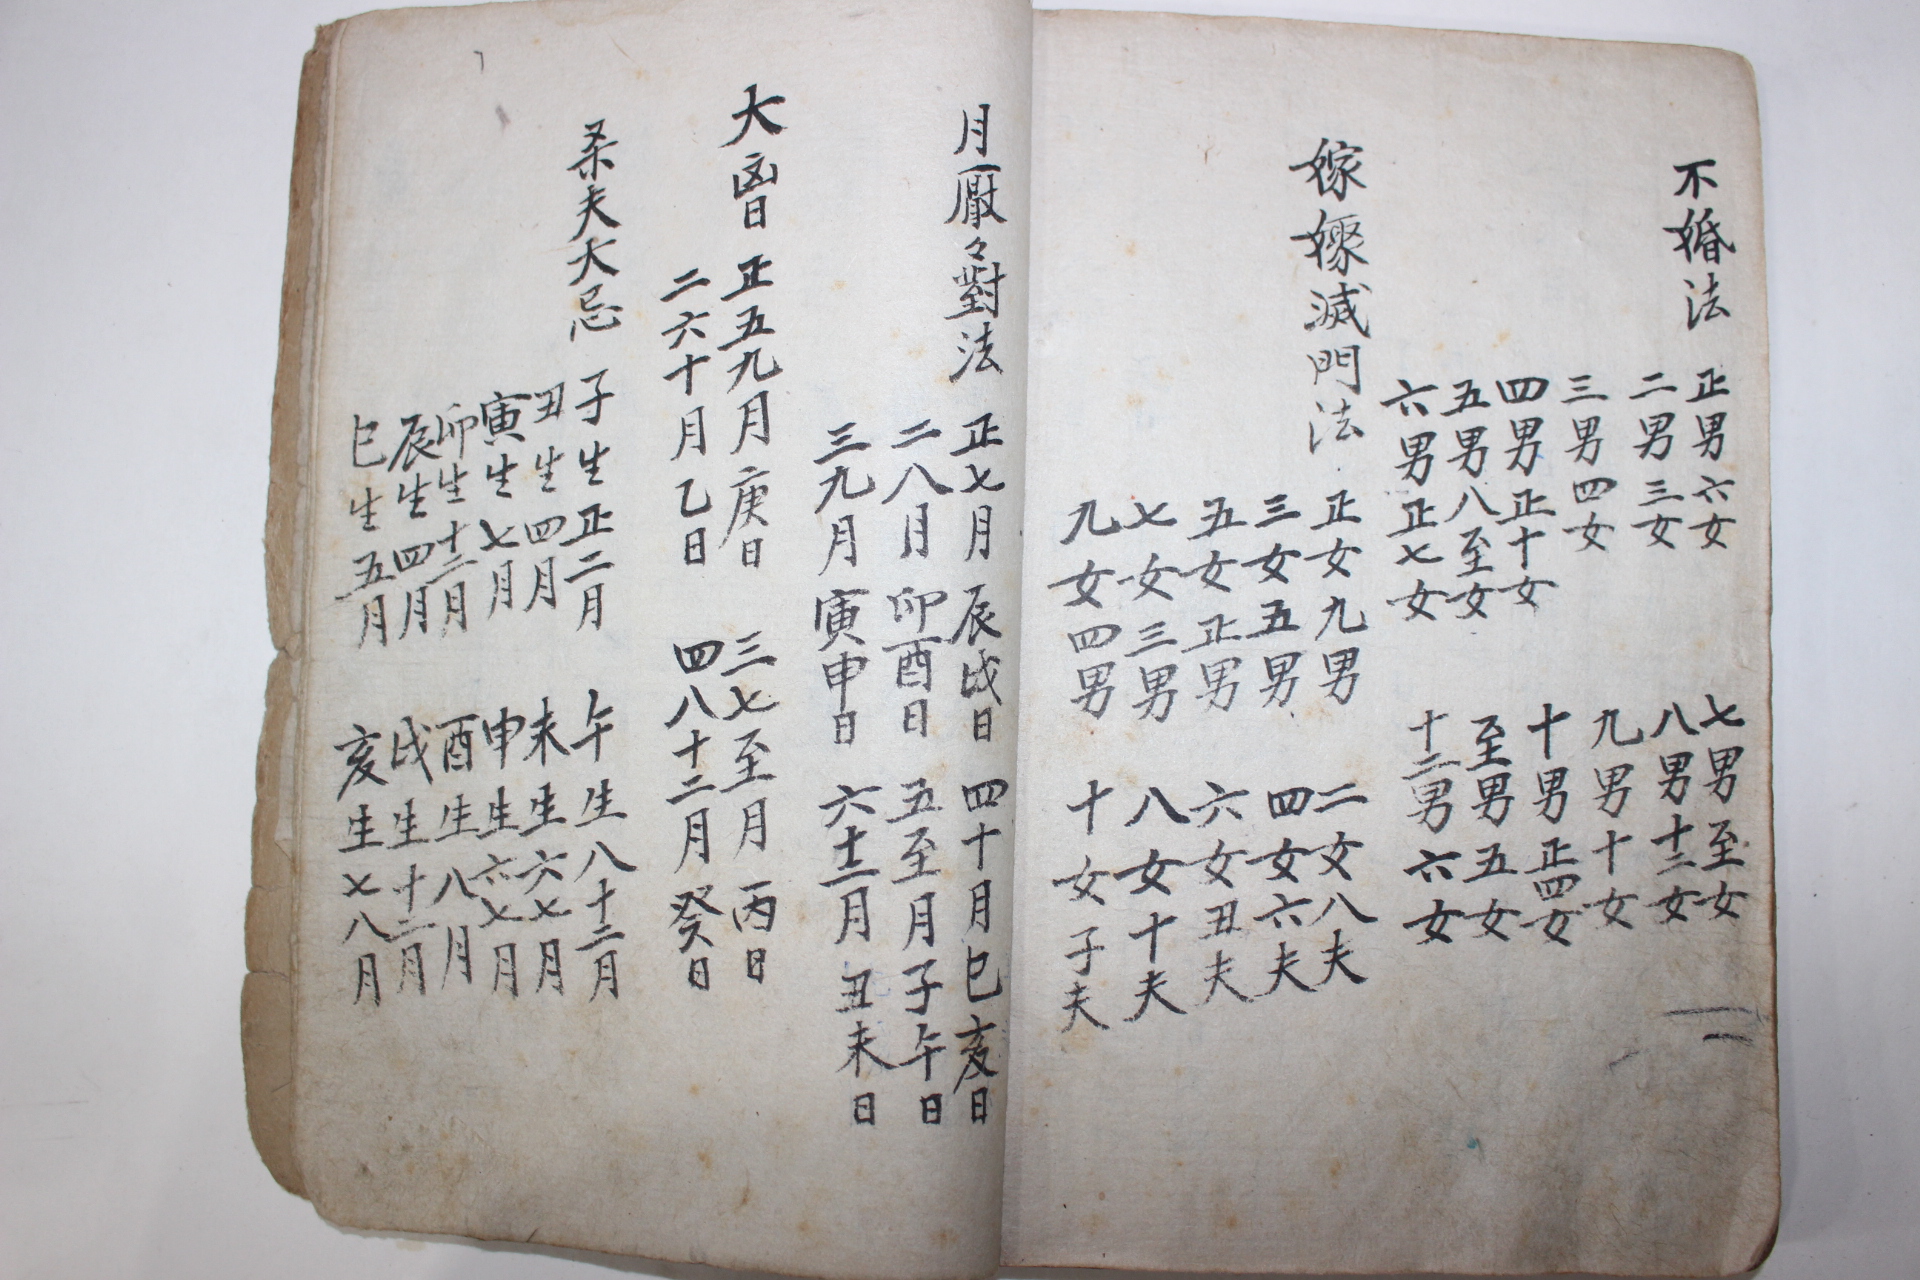 不婚法 正男六女 七男至女
二男三女 八男十二女
三男四女 九男十女
四男正十女 十男正四女
五男八至女 至男五女
六男正七女 十二男六女
嫁㛐滅門法 正女九男 二女八夫
三女五男 四女六夫
五女正男 六女丑夫
七女三男 八女十夫
九女四男 十女子夫
月厭々對法 正七月辰戌日 四十月巳亥日
二八月卯酉日 五至月子午日
三九月寅申日 六十二月丑未日
大凶日 正五九月庚日 三七至月丙日
二六十月乙日 四八十二月癸日
夫大忌 子生正二月 午生八十二月
丑生四月 未生六七月
寅生七月 申生六七月
卯生十二月 酉生八月
辰生四月 戌生十二月
巳生五月 亥生七八月